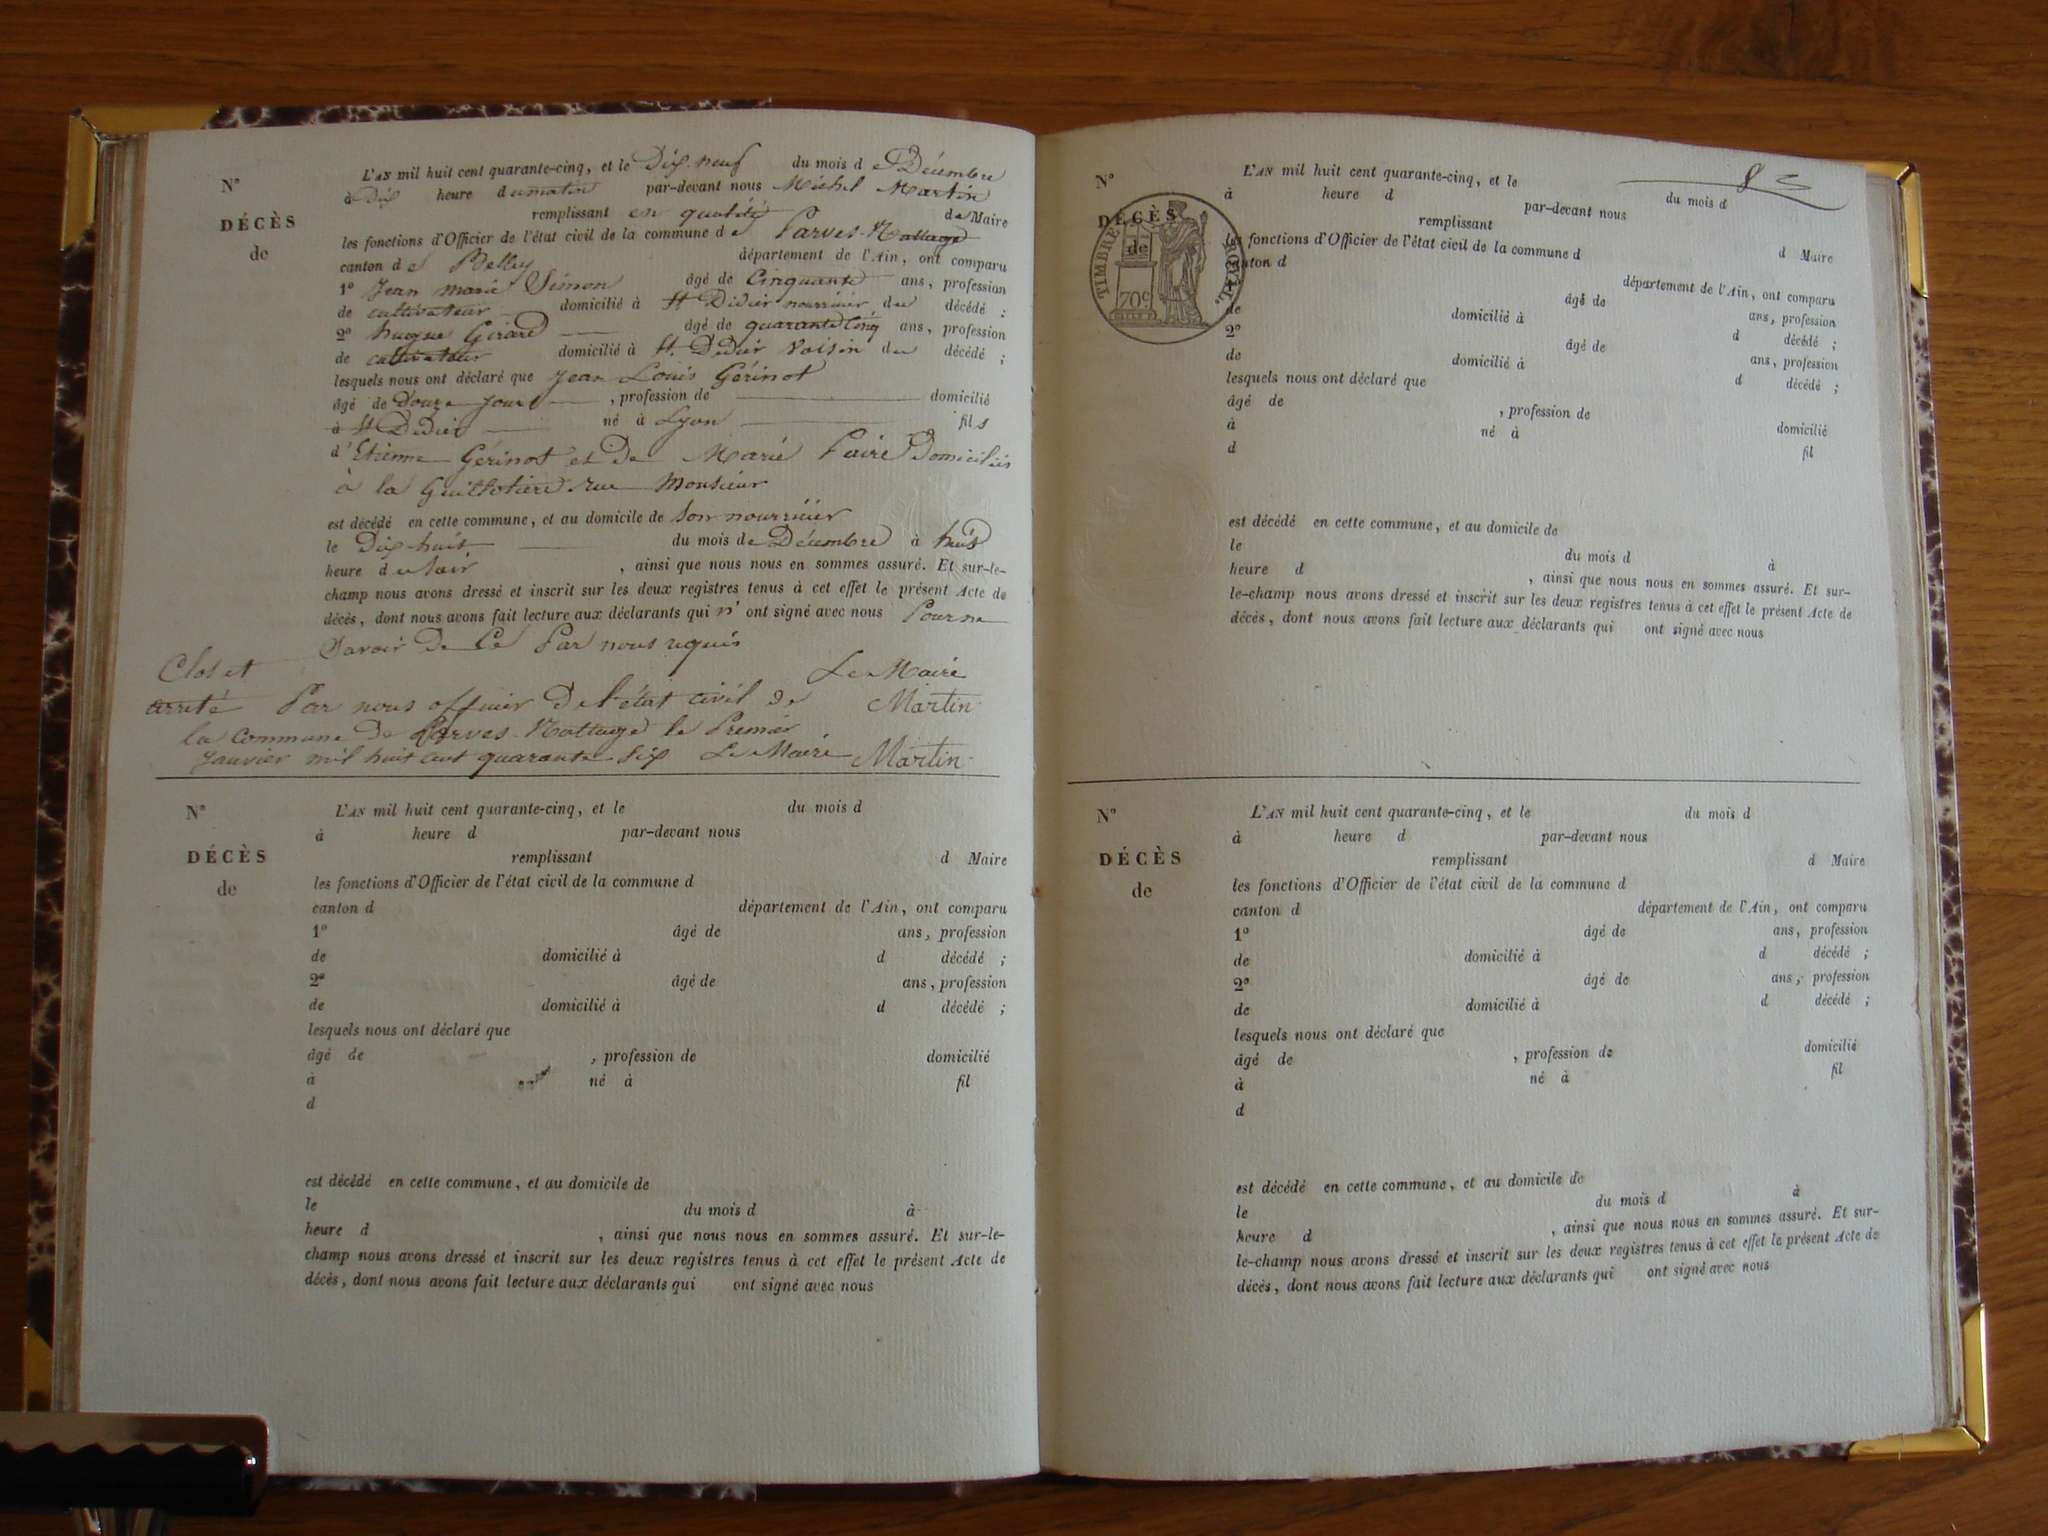 L'AN mil huit cent quarante-cinq, et le Dix-neuf du mois d e Décembre
N°
à Dix heure d u matin par-devant nous Michel Martin
DÉCÈS
remplissant en qualité de Maire
les fonctions d'Officier de l'état civil de la commune d e Parves-Nattage
de
canton d e Belley département de l'Ain, ont comparu
1° Jean marie Simon âgé de Cinquante ans, profession
de cultivateur domicilié à St Didier nourricier du décédé ;
2° hugue Girard âgé de quarante Cinq ans, profession
de cultivateur domicilié à St. Didier Voisin du décédé ;
lesquels nous ont déclaré que Jean Louis Gérinot
âgé de Douze jours , profession de domicilié
à St Didier né à Lyon fils
d' Etienne Gérinot et de Marie Faire Domiciliés
à la Guillotiere rue Monsieur
est décédé en cette commune, et au domicile de son nourricier
le Dix-huit du mois de Décembre à huit
heure d u soir , ainsi que nous nous en sommes assuré. Et sur-le-
champ nous avons dressé et inscrit sur les deux registres tenus à cet effet le présent Acte de
décès, dont nous avons fait lecture aux déclarants qui n' ont signé avec nous Pour ne
Savoir De Ce Par nous requis
Clos et Le Maire
arreté Par nous officier De l'état civil de Martin
la commune de Parves-Nattage le Premier
Janvier mil huit cent quarante six Le Maire Martin
N° L'AN mil huit cent quarante-cinq, et le du mois d
à heure d par-devant nous
DÉCÈS remplissant d Maire
de les fonctions d'Officier de l'état civil de la commune d
canton d département de l'Ain, ont comparu
1° âgé de ans, profession
de domicilié à d décédé ;
2° âgé de ans, profession
de domicilié à d décédé ;
lesquels nous ont déclaré que
âgé de , profession de domicilié
à né à fil
d
est décédé en cette commune, et au domicile de
le du mois d à
heure d , ainsi que nous nous en sommes assuré. Et sur-le-
champ nous avons dressé et inscrit sur les deux registres tenus à cet effet le présent Acte de
décès, dont nous avons fait lecture aux déclarants qui ont signé avec nous
8
N° L'AN mil huit cent quarante-cinq, et le du mois d
à heure d par-devant nous
DÉCÈS remplissant d Maire
de les fonctions d'Officier de l'état civil de la commune d
TIMBRE ROYAL.
70c
canton d département de l'Ain, ont comparu
âgé de ans, profession
de domicilié à d décédé ;
2° âgé de ans, profession
de domicilié à d décédé ;
lesquels nous ont déclaré que
âgé de , profession de domicilié
à né à fil
d
est décédé en cette commune, et au domicile de
le du mois d à
heure d , ainsi que nous nous en sommes assuré. Et sur-
le-champ nous avons dressé et inscrit sur les deux registres tenus à cet effet le présent Acte de
décès, dont nous avons fait lecture aux déclarants qui ont signé avec nous
N° L'AN mil huit cent quarante-cinq, et le du mois d
à heure d par-devant nous
DÉCÈS remplissant d Maire
de les fonctions d'Officier de l'état civil de la commune d
canton d département de l'Ain, ont comparu
1° âgé de ans, profession
de domicilié à d décédé ;
2° âgé de ans, profession
de domicilié à d décédé ;
lesquels nous ont déclaré que
âgé de , profession de domicilié
à né à fil
d
est décédé en cette commune, et au domicile de
le du mois d à
heure d , ainsi que nous nous en sommes assuré. Et sur-
le-champ nous avons dressé et inscrit sur les deux registres tenus à cet effet le présent Acte de
décès, dont nous avons fait lecture aux déclarants qui ont signé avec nous